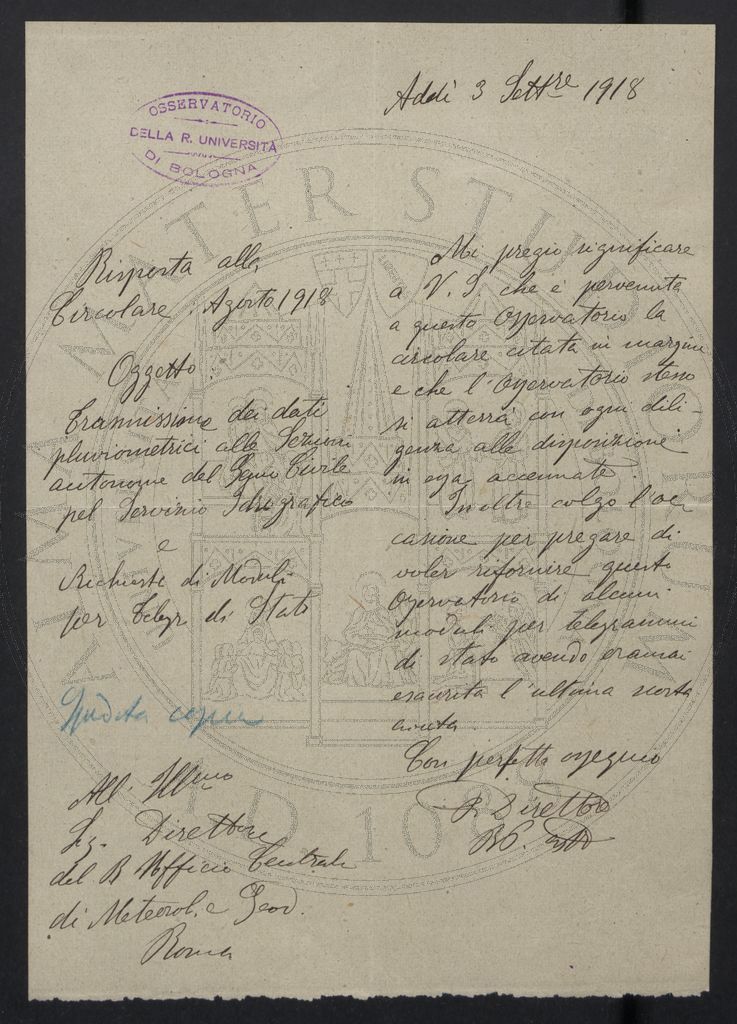 OSSERVATORIO
DELLA R. UNIVERSITÀ
DI BOLOGNA
Addì 3 Settre 1918
Risposta alla
Circolare Agosto 1918
Oggetto
Trasmissione dei dati
pluviometrici alle Sezioni
autonome del Genio Civile
pel Servizio Idrografico
e
Richieste di Moduli
per Telegr. di Stato
Spedita copia
All' Illmo
Sg. Direttore
del R Ufficio Centrale
di Meteorol. e Geod.
Roma
Mi pregio significare
a V. S. che è pervenuta
a questo Osservatorio la
circolare citata in margine
e che l'Osservatorio stesso
si atterrà con ogni dili-
genza alle disposizione
in essa accennate.
Inoltre colgo l'oc
casione per pregare di
voler rifornire questo
Osservatorio di alcuni
moduli per telegrammi
di stato avendo oramai
esaurita l'ultima scorta
avuta.
Con perfetto ossequio
Il Direttore
ALMA MATER STUDIORUM
A.D. 1088